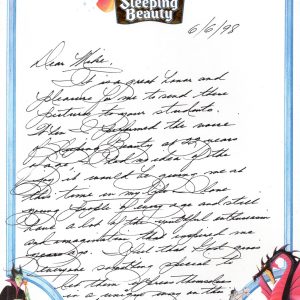 Sleeping
Beauty
6/6/98
Dear Mike,
It is a great honor and
pleasure for me to send these
pictures to your students.
When I performed the voice
of Sleeping Beauty at 22 years
I had no idea of the
joy it would be giving me at
this time in my life. I love
young people of every age and still
have a lot of the youthful enthusiasm
and imagination that inspired me
I feel that God gives
everyone something special to
let them express themselves
in a unique way in this